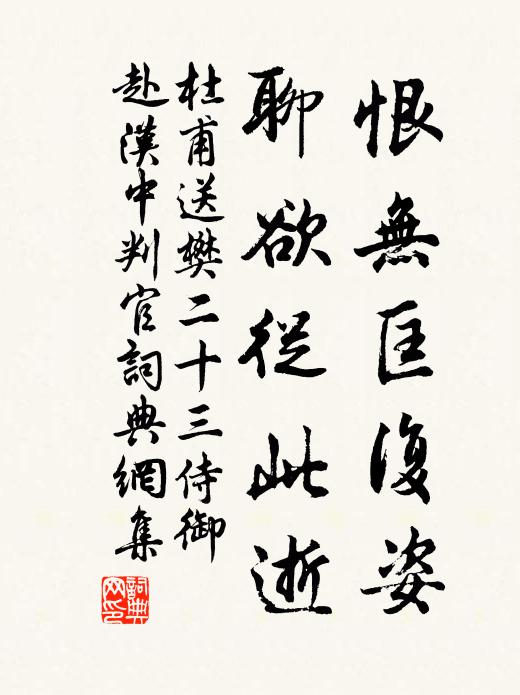 恨無匡復姿
聊欲從此逝
杜甫送樊二十三侍御
赴漢中判官詞典網集
詞典網印